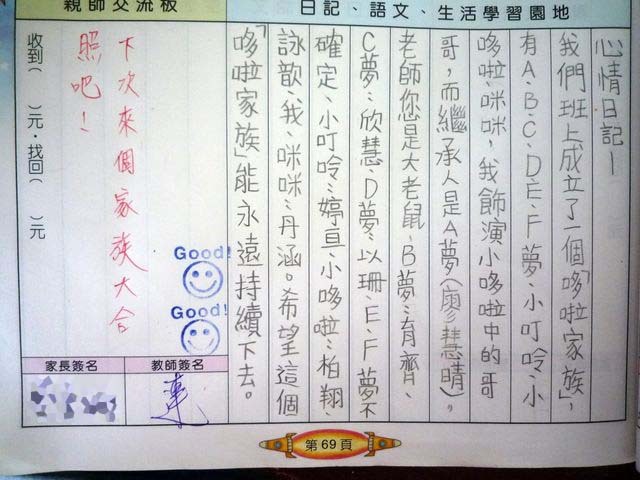 日記、語文、生活學習園地
心情日記—
我們班上成立了一個「哆啦家族」，
有A、B、C、D、E、F夢、小叮呤、小
哆啦、咪咪，我飾演小哆啦中的哥
哥，而繼承人是A夢(廖慧晴)。
老師您是大老鼠、B夢：育齊、
C夢：欣慧、D夢：以珊、E、F夢不
確定、小叮呤：婷亘、小哆啦：柏翔、
詠歆、我、咪咪：丹涵。希望這個
「哆啦家族」能永遠持續下去。
親師交流板
下次來個家族大合
照吧！
收到（ ）元，找回（ ）元
Good!
Good!
教師簽名
家長簽名
第69頁